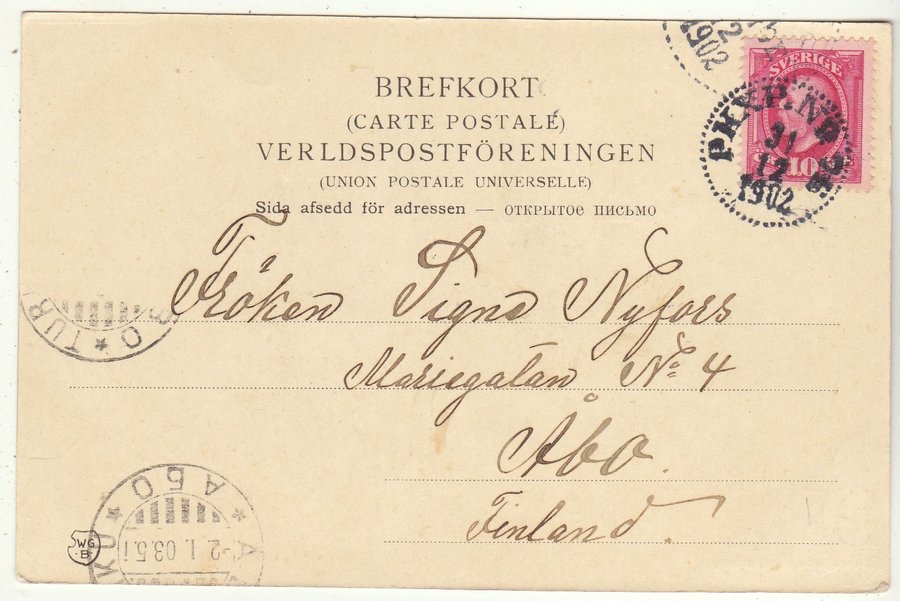 BREFKORT
(CARTE POSTALE)
VERLDSPOSTFÖRENINGEN
(UNION POSTALE UNIVERSELLE)
Sida afsedd för adressen — ОТКРЫТОЕ ПИСЬМО
SVERIGE
10
2
1902
PKXP. Nº 2
31
12
1902
Fröken Signe Nyfors
Mariegatan Nº 4
Åbo.
Finland
TUR
АБО
-2.1.03.5
WG
B